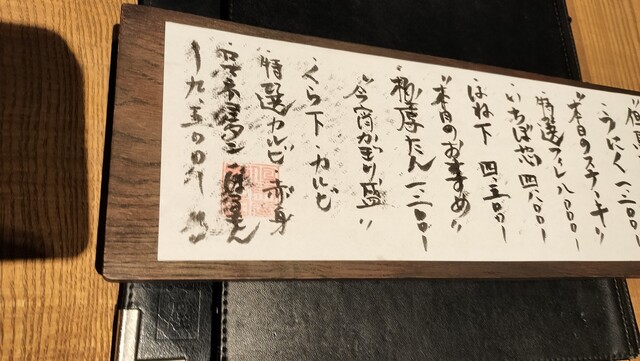 うにく 一二〇〇ー
"本日のステーキ"
特選フィレ 八、〇〇〇ー
いちぼ芯 四、八〇〇ー
はね下 四、五〇〇ー
"本日のおすすめ"
極厚たん 一、二〇〇ー
"今宵かぎり盛"
くら下・カルビ
特選カルビ 赤身
ほるもん
一九、五〇〇ー